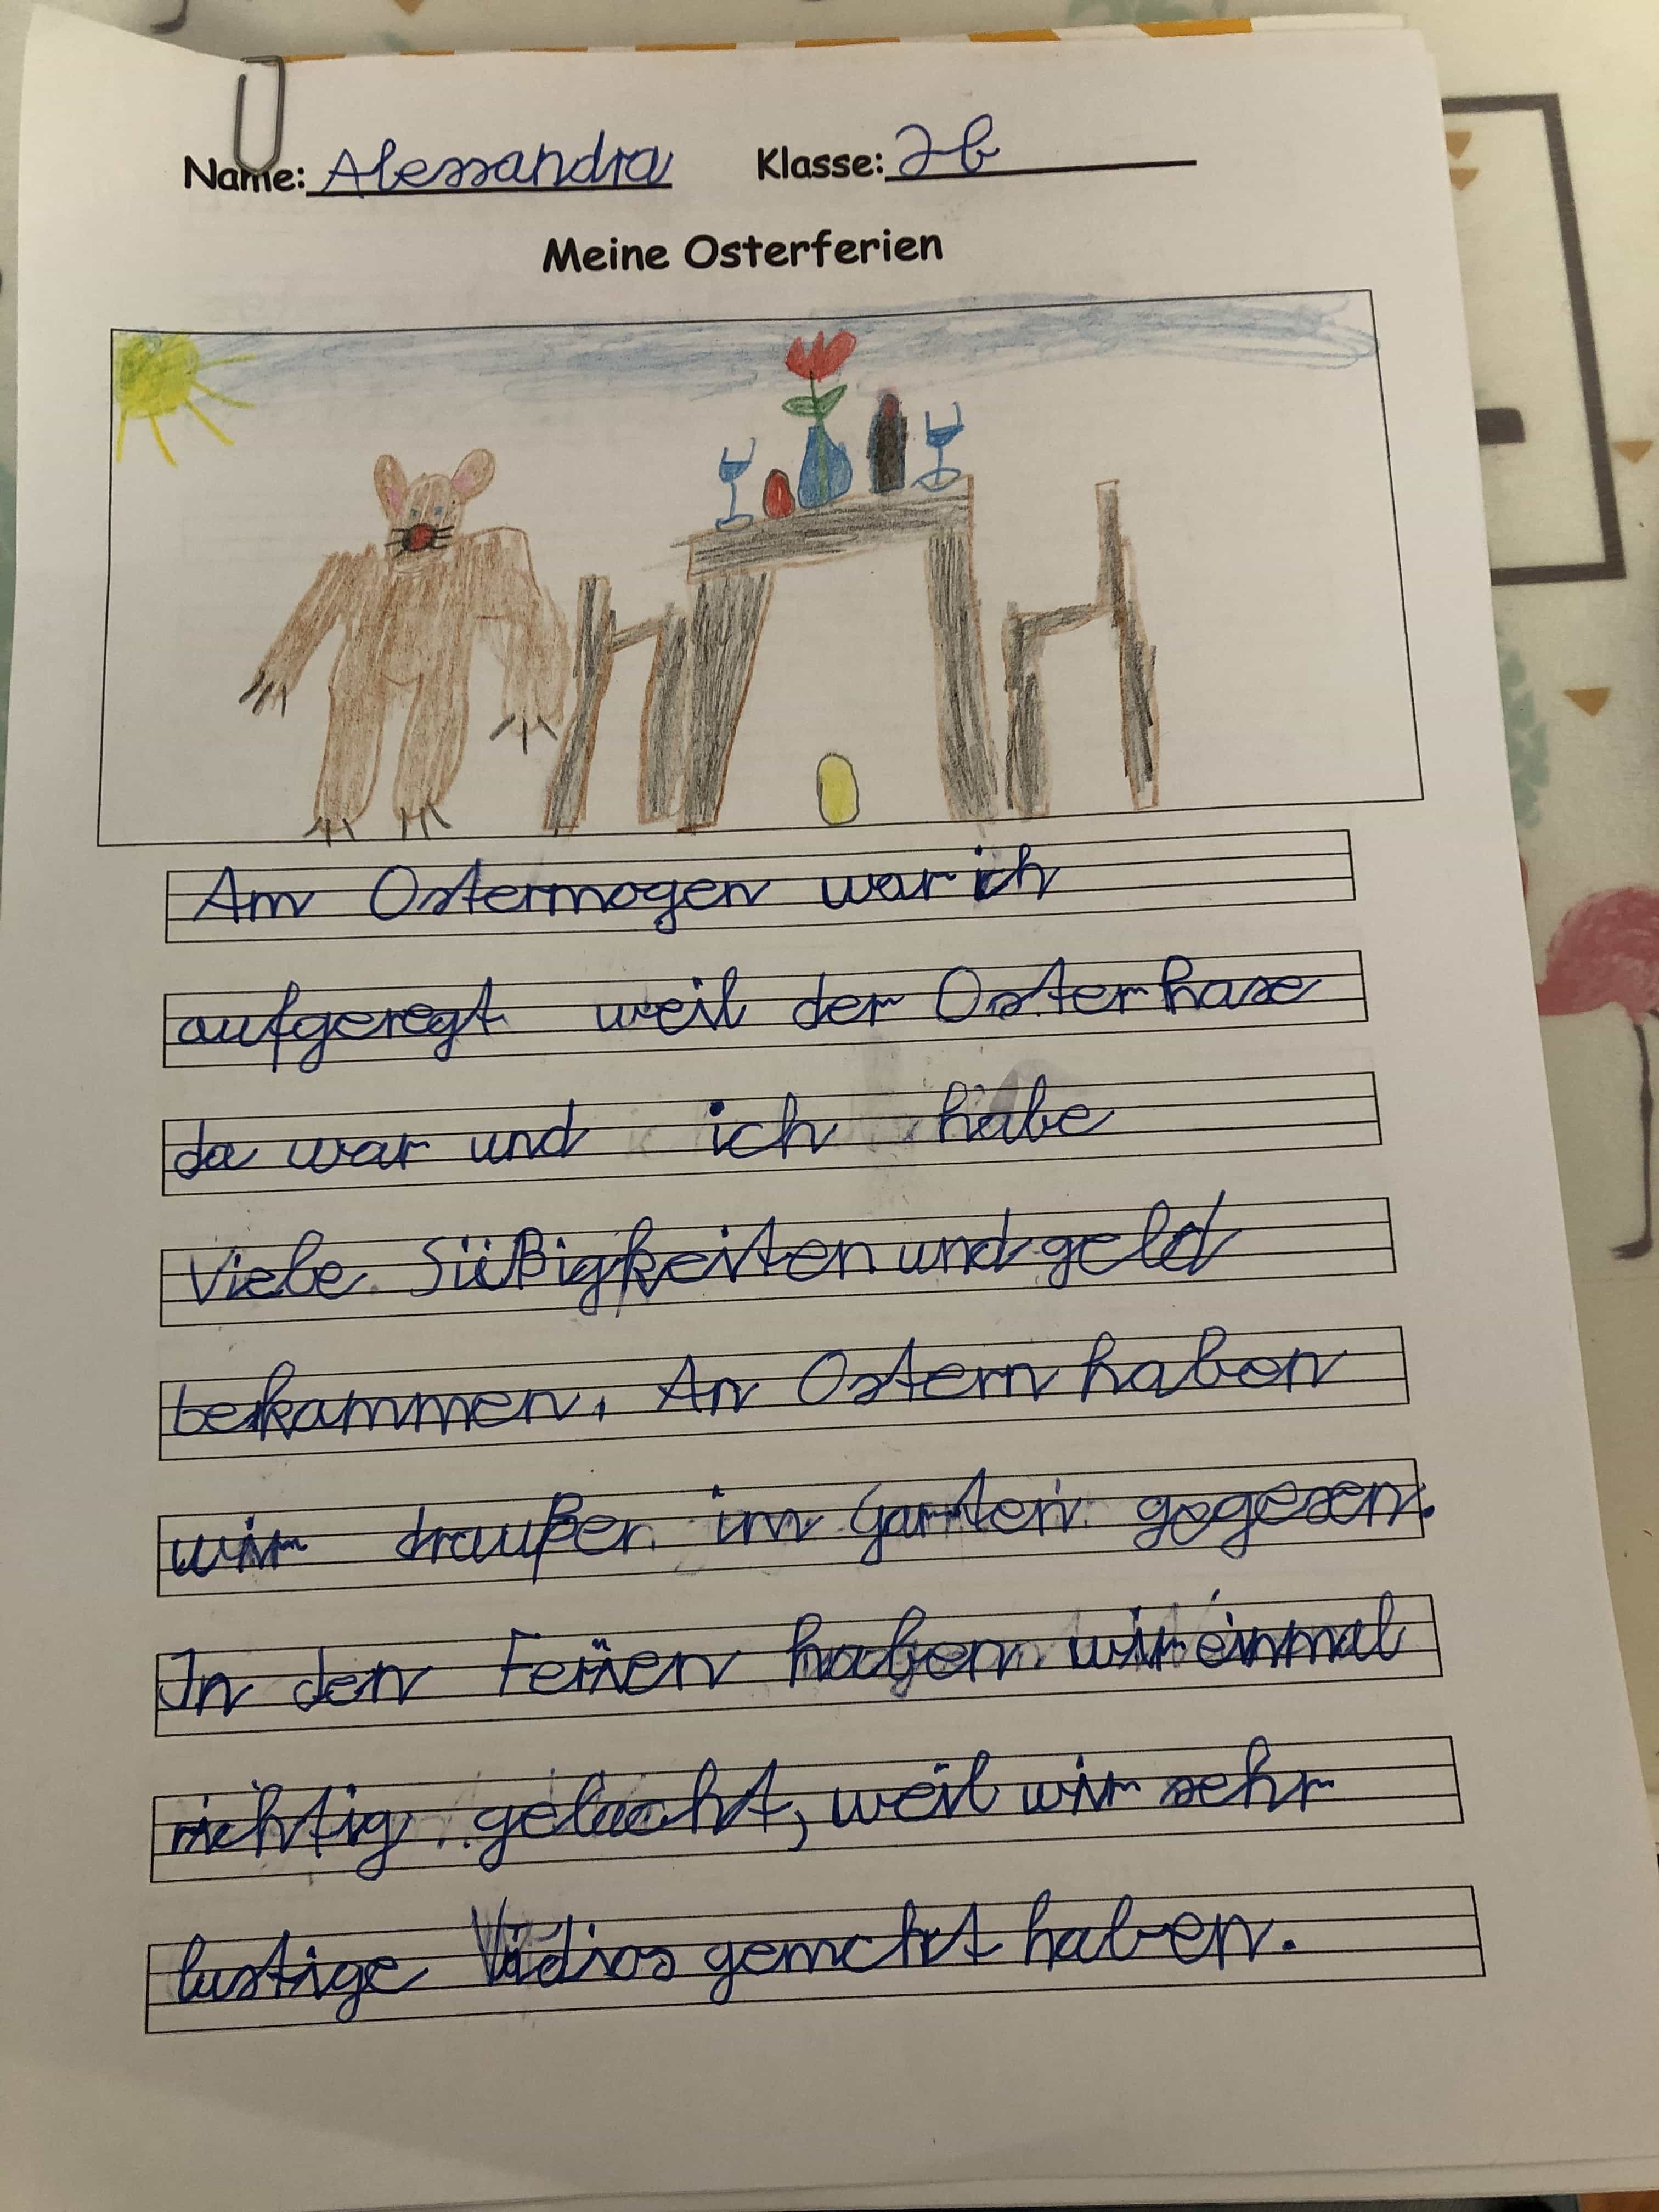 Name: Alessandra Klasse: 2b
Meine Osterferien
Am Ostermogen war ich
aufgeregt weil der Osterhase
da war und ich habe
Viele Süßigkeiten und geld
bekammen. An Ostern haben
wir draußen im Garten gegesen.
In den Ferien haben wir einmal
richtig gelacht, weil wir sehr
lustige Vidios gemcht haben.